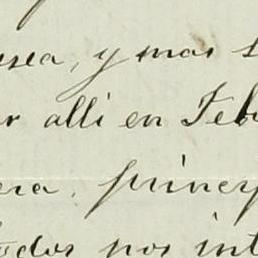 sea, y mas
r alli en Feb
era, princip
todos nos int